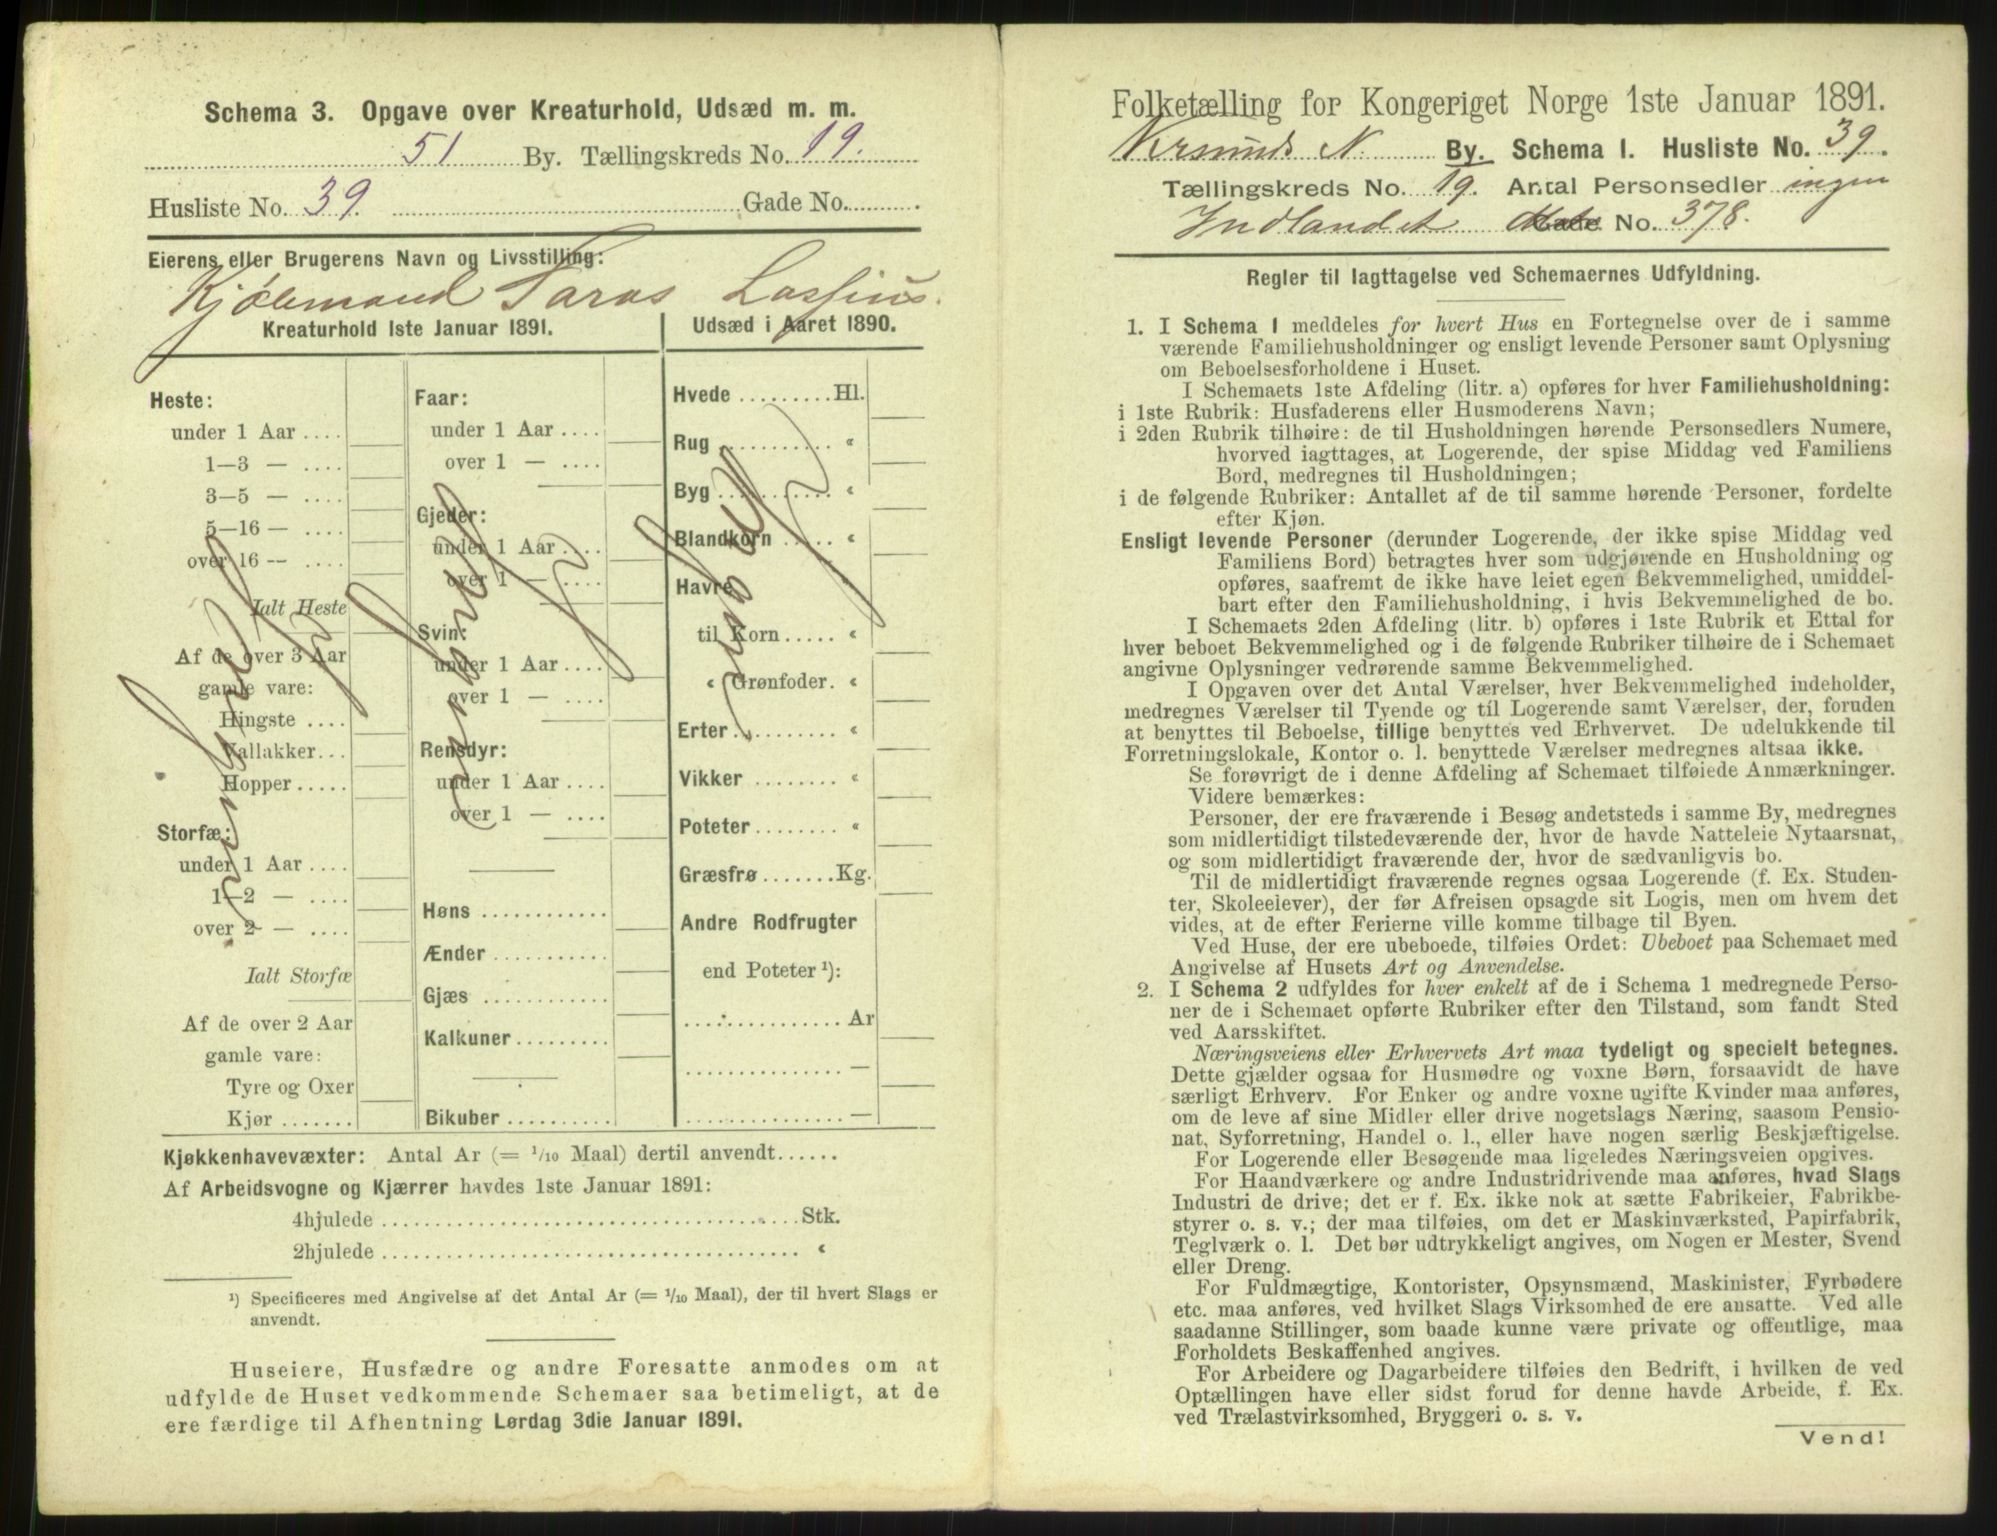 Schema 3. Opgave over Kreaturhold, Udsæd m. m.
51 By. Tællingskreds No. 19.
Husliste No. 39. Gade No.
Eierens eller Brugerens Navn og Livsstilling:
Kjøbmand Laras Lassius.
Kreaturhold 1ste Januar 1891.
Heste:
under 1 Aar ....
1—3 — ....
3—5 — ....
5—16 — ....
over 16 — ....
Ialt Heste
Af de over 3 Aar
gamle vare:
Hingste ....
Vallakker...
Hopper .....
Storfæ:
under 1 Aar ....
1—2 — ....
over 2 — ....
Ialt Storfæ
Af de over 2 Aar
gamle vare:
Tyre og Oxer
Kjør .......
Faar:
under 1 Aar ....
over 1 — ....
Gjeder:
under 1 Aar ....
over 1 — ....
Svin:
under 1 Aar ....
over 1 — ....
Rensdyr:
under 1 Aar ....
over 1 — ....
Høns ............
Ænder ...........
Gjæs ............
Kalkuner .........
Bikuber ..........
Udsæd i Aaret 1890.
Hvede .........Hl.
Rug .......... «
Byg .......... «
Blandkorn ..... «
Havre
til Korn ..... «
« Grønfoder. «
Erter ......... «
Vikker ........ «
Poteter ........ «
Græsfrø .......Kg.
Andre Rodfrugter
end Poteter ¹):
............... Ar
............... —
............... —
Kjøkkenhavevæxter: Antal Ar (= 1/10 Maal) dertil anvendt......
Af Arbeidsvogne og Kjærrer havdes 1ste Januar 1891:
4hjulede ....................................... Stk.
2hjulede ....................................... «
¹) Specificeres med Angivelse af det Antal Ar (= 1/10 Maal), der til hvert Slags er
anvendt.
Huseiere, Husfædre og andre Foresatte anmodes om at
udfylde de Huset vedkommende Schemaer saa betimeligt, at de
ere færdige til Afhentning Lørdag 3die Januar 1891.
Folketælling for Kongeriget Norge 1ste Januar 1891.
Krsunds N. By. Schema I. Husliste No. 39.
Tællingskreds No. 19. Antal Personsedler ingen
Indlandet No. 378.
Regler til Iagttagelse ved Schemaernes Udfyldning.
1. I Schema 1 meddeles for hvert Hus en Fortegnelse over de i samme
værende Familiehusholdninger og ensligt levende Personer samt Oplysning
om Beboelsesforholdene i Huset.
I Schemaets 1ste Afdeling (litr. a) opføres for hver Familiehusholdning:
i 1ste Rubrik: Husfaderens eller Husmoderens Navn;
i 2den Rubrik tilhøire: de til Husholdningen hørende Personsedlers Numere,
hvorved iagttages, at Logerende, der spise Middag ved Familiens
Bord, medregnes til Husholdningen;
i de følgende Rubriker: Antallet af de til samme hørende Personer, fordelte
efter Kjøn.
Ensligt levende Personer (derunder Logerende, der ikke spise Middag ved
Familiens Bord) betragtes hver som udgjørende en Husholdning og
opføres, saafremt de ikke have leiet egen Bekvemmelighed, umiddel-
bart efter den Familiehusholdning, i hvis Bekvemmelighed de bo.
I Schemaets 2den Afdeling (litr. b) opføres i 1ste Rubrik et Ettal for
hver beboet Bekvemmelighed og i de følgende Rubriker tilhøire de i Schemaet
angivne Oplysninger vedrørende samme Bekvemmelighed.
I Opgaven over det Antal Værelser, hver Bekvemmelighed indeholder,
medregnes Værelser til Tyende og til Logerende samt Værelser, der, foruden
at benyttes til Beboelse, tillige benyttes ved Erhvervet. De udelukkende til
Forretningslokale, Kontor o. l. benyttede Værelser medregnes altsaa ikke.
Se forøvrigt de i denne Afdeling af Schemaet tilføiede Anmærkninger.
Videre bemærkes:
Personer, der ere fraværende i Besøg andetsteds i samme By, medregnes
som midlertidigt tilstedeværende der, hvor de havde Natteleie Nytaarsnat,
og som midlertidigt fraværende der, hvor de sædvanligvis bo.
Til de midlertidigt fraværende regnes ogsaa Logerende (f. Ex. Studen-
ter, Skoleelever), der før Afreisen opsagde sit Logis, men om hvem det
vides, at de efter Ferierne ville komme tilbage til Byen.
Ved Huse, der ere ubeboede, tilføies Ordet: Ubeboet paa Schemaet med
Angivelse af Husets Art og Anvendelse.
2. I Schema 2 udfyldes for hver enkelt af de i Schema 1 medregnede Perso-
ner de i Schemaet opførte Rubriker efter den Tilstand, som fandt Sted
ved Aarsskiftet.
Næringsveiens eller Erhvervets Art maa tydeligt og specielt betegnes.
Dette gjælder ogsaa for Husmødre og voxne Børn, forsaavidt de have
særligt Erhverv. For Enker og andre voxne ugifte Kvinder maa anføres,
om de leve af sine Midler eller drive nogetslags Næring, saasom Pensio-
nat, Syforretning, Handel o. l., eller have nogen særlig Beskjæftigelse.
For Logerende eller Besøgende maa ligeledes Næringsveien opgives.
For Haandværkere og andre Industridrivende maa anføres, hvad Slags
Industri de drive; det er f. Ex. ikke nok at sætte Fabrikeier, Fabrikbe-
styrer o. s. v.; der maa tilføies, om det er Maskinværksted, Papirfabrik,
Teglværk o. l. Det bør udtrykkeligt angives, om Nogen er Mester, Svend
eller Dreng.
For Fuldmægtige, Kontorister, Opsynsmænd, Maskinister, Fyrbødere
etc. maa anføres, ved hvilket Slags Virksomhed de ere ansatte. Ved alle
saadanne Stillinger, som baade kunne være private og offentlige, maa
Forholdets Beskaffenhed angives.
For Arbeidere og Dagarbeidere tilføies den Bedrift, i hvilken de ved
Optællingen have eller sidst forud for denne havde Arbeide, f. Ex.
ved Trælastvirksomhed, Bryggeri o. s. v.
Vend!